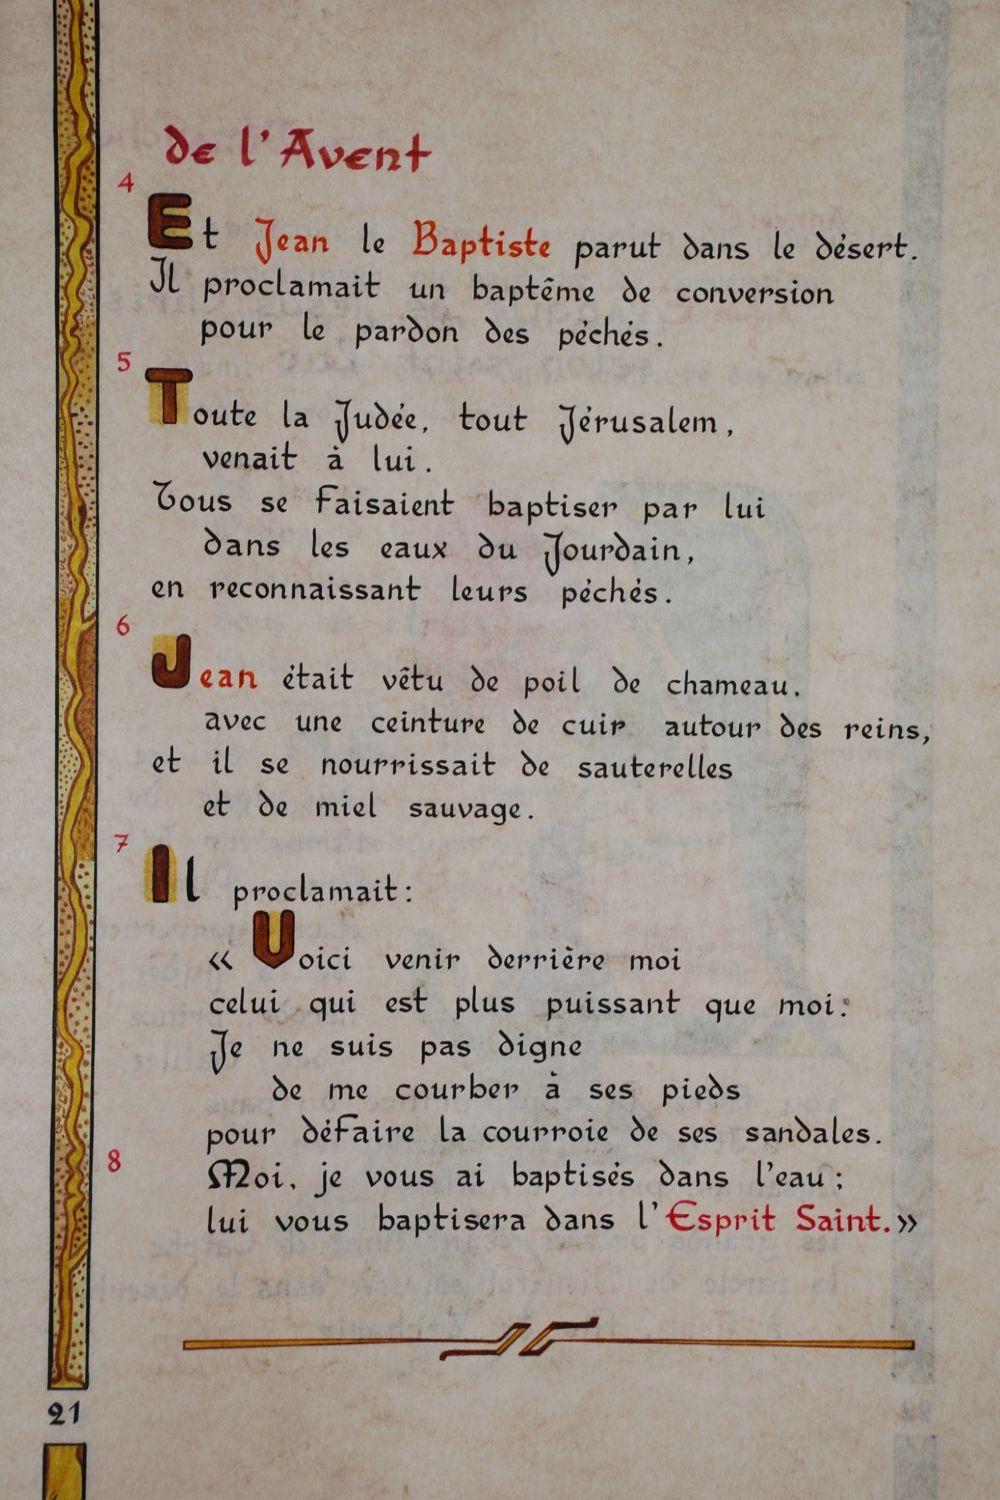 de l'Avent
4
Et Jean le Baptiste parut dans le désert.
Il proclamait un baptême de conversion
pour le pardon des péchés.
5
Toute la Judée, tout Jérusalem,
venait à lui.
Tous se faisaient baptiser par lui
dans les eaux du Jourdain,
en reconnaissant leurs péchés.
6
Jean était vêtu de poil de chameau,
avec une ceinture de cuir autour des reins,
et il se nourrissait de sauterelles
et de miel sauvage.
7
Il proclamait :
« Voici venir derrière moi
celui qui est plus puissant que moi :
Je ne suis pas digne
de me courber à ses pieds
pour défaire la courroie de ses sandales.
8
Moi, je vous ai baptisés dans l'eau ;
lui vous baptisera dans l'Esprit Saint. »
21